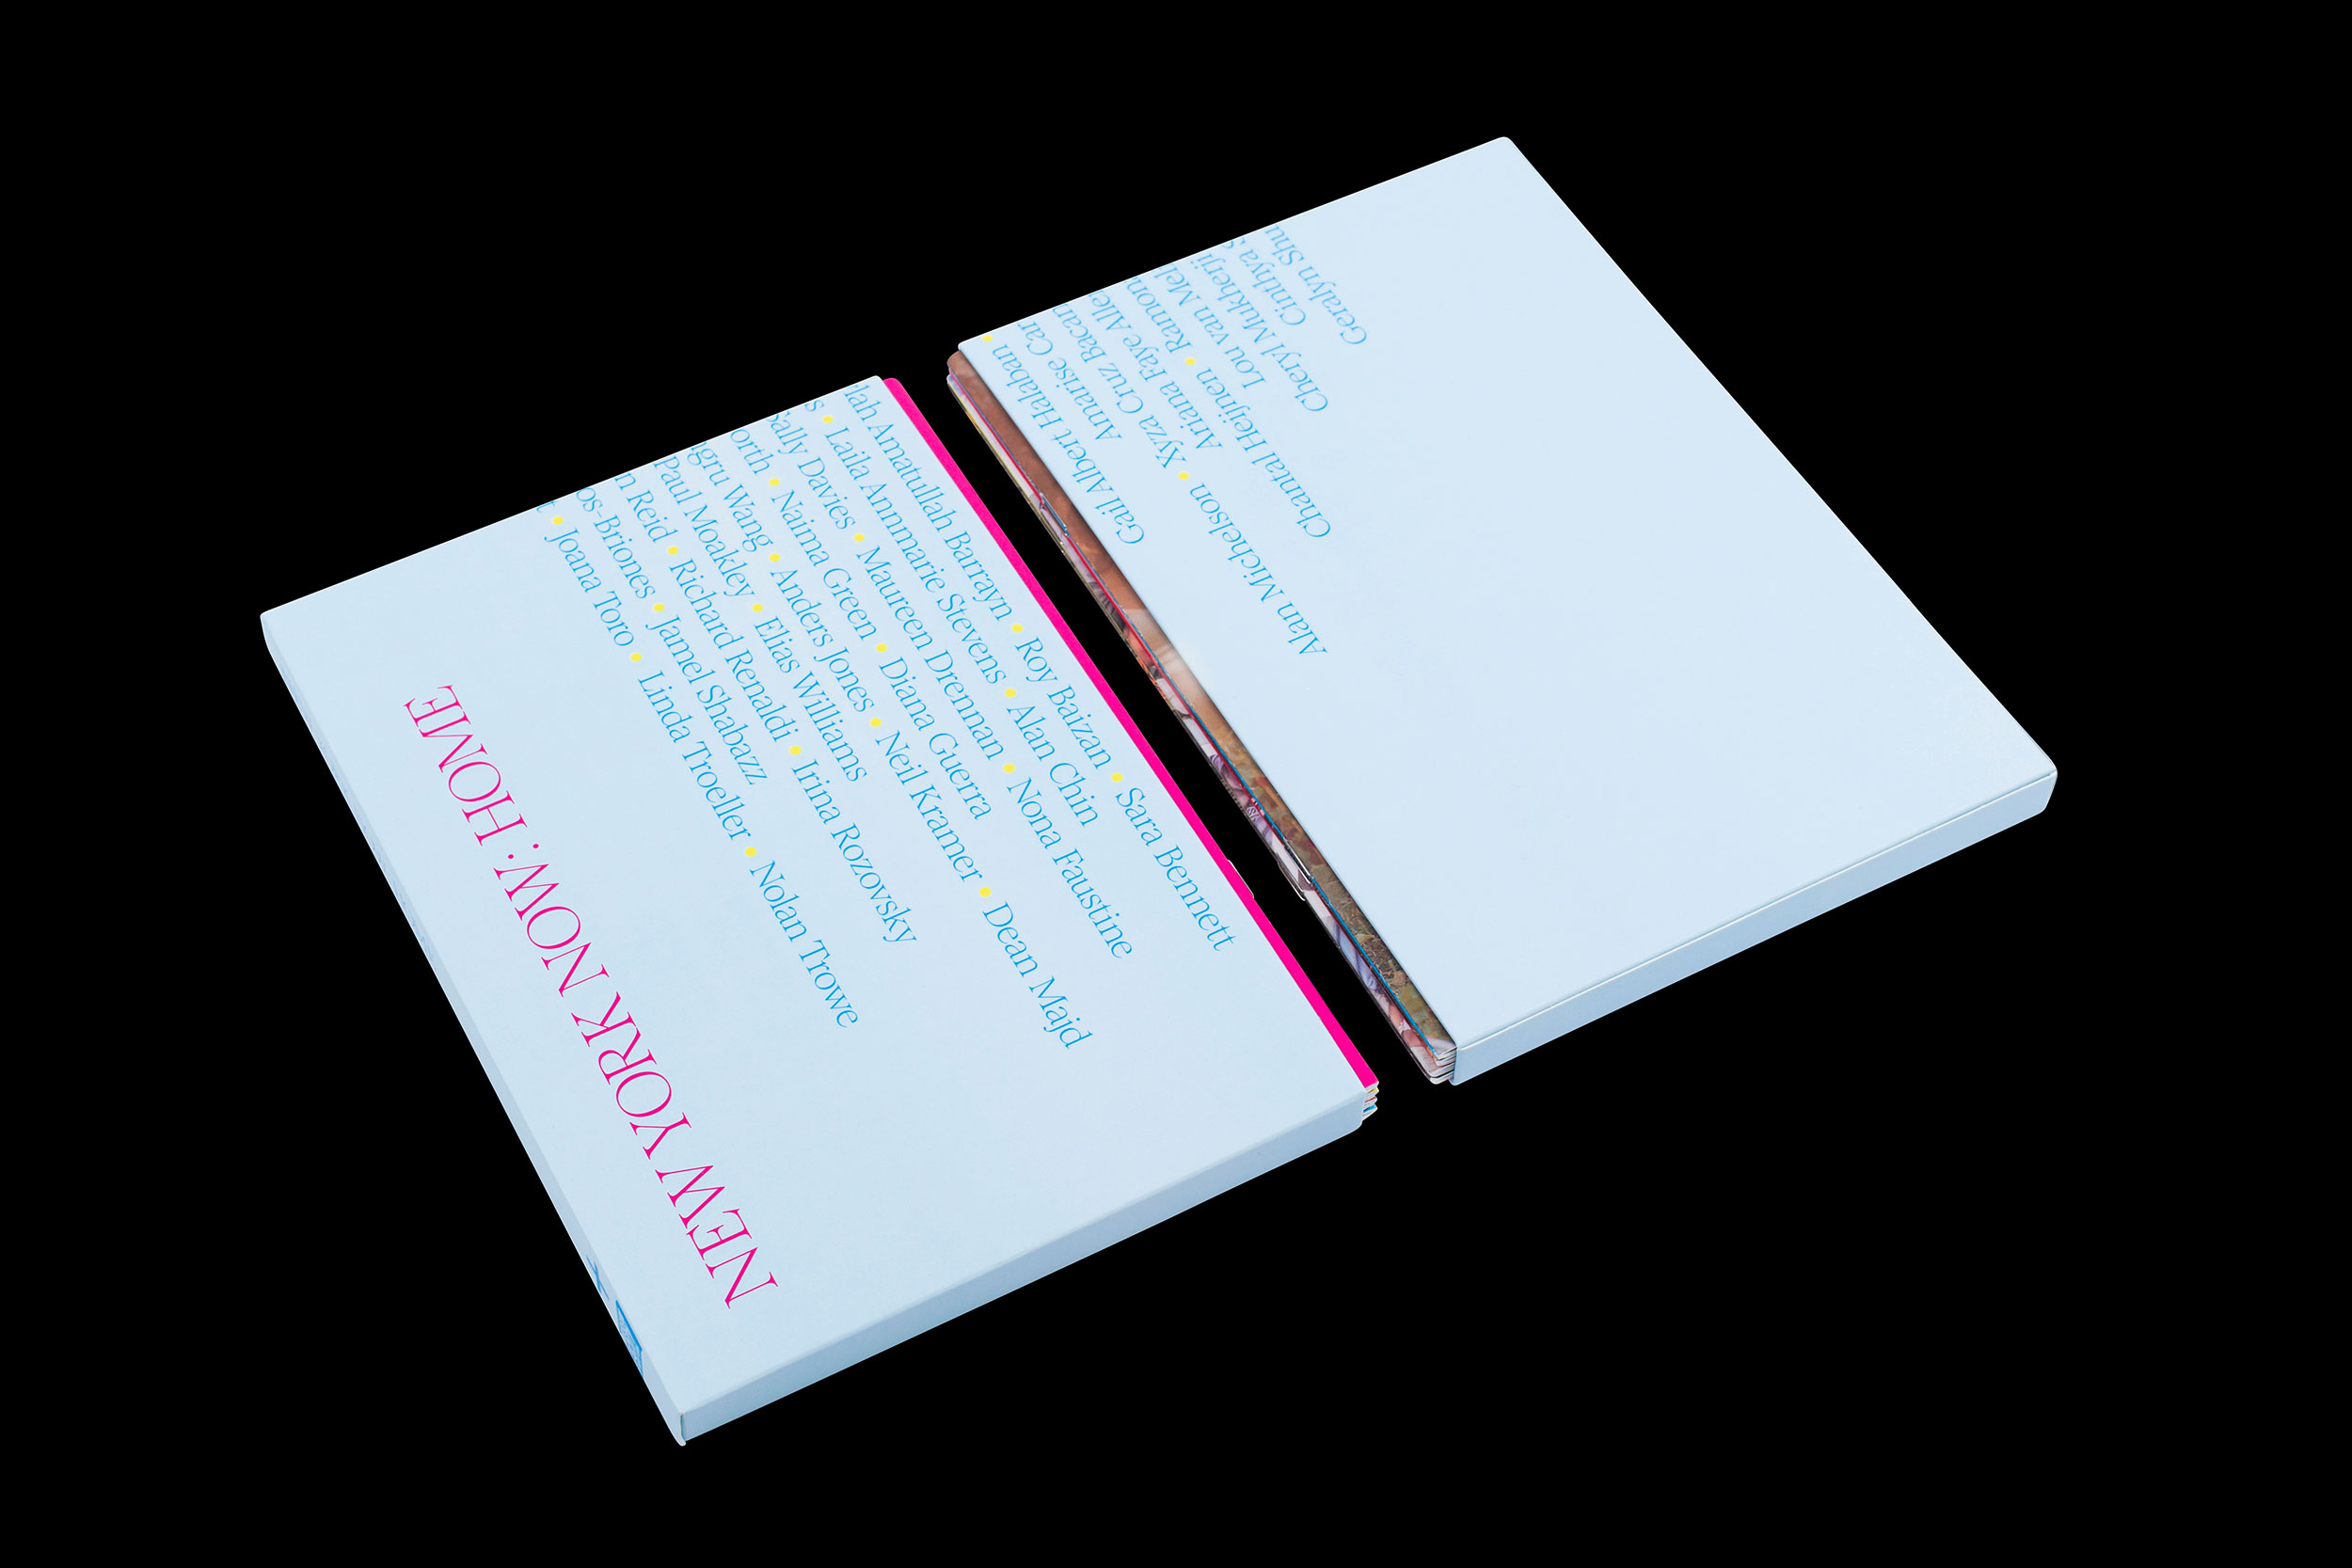 llah Amatullah Barrayn • Roy Baizan • Sara Bennett
s • Laila Annmarie Stevens • Alan Chin
Sally Davies • Maureen Drennan • Nona Faustine
orth • Naima Green • Diana Guerra
ngru Wang • Anders Jones • Neil Kramer • Dean Majd
Paul Moakley • Elias Williams
n Reid • Richard Renaldi • Irina Rozovsky
os-Briones • Jamel Shabazz
t • Joana Toro • Linda Troeller • Nolan Trowe
NEW YORK NOW: HOME
Gail Albert Halaban •
Amarise Car
Alan Michelson • Xyza Cruz Bacan
Ariana Faye Alle
Chantal Heijnen • Ramon
Lou van Mel
Cheryl Mukherji
Cinthya S
Geralyn Shu